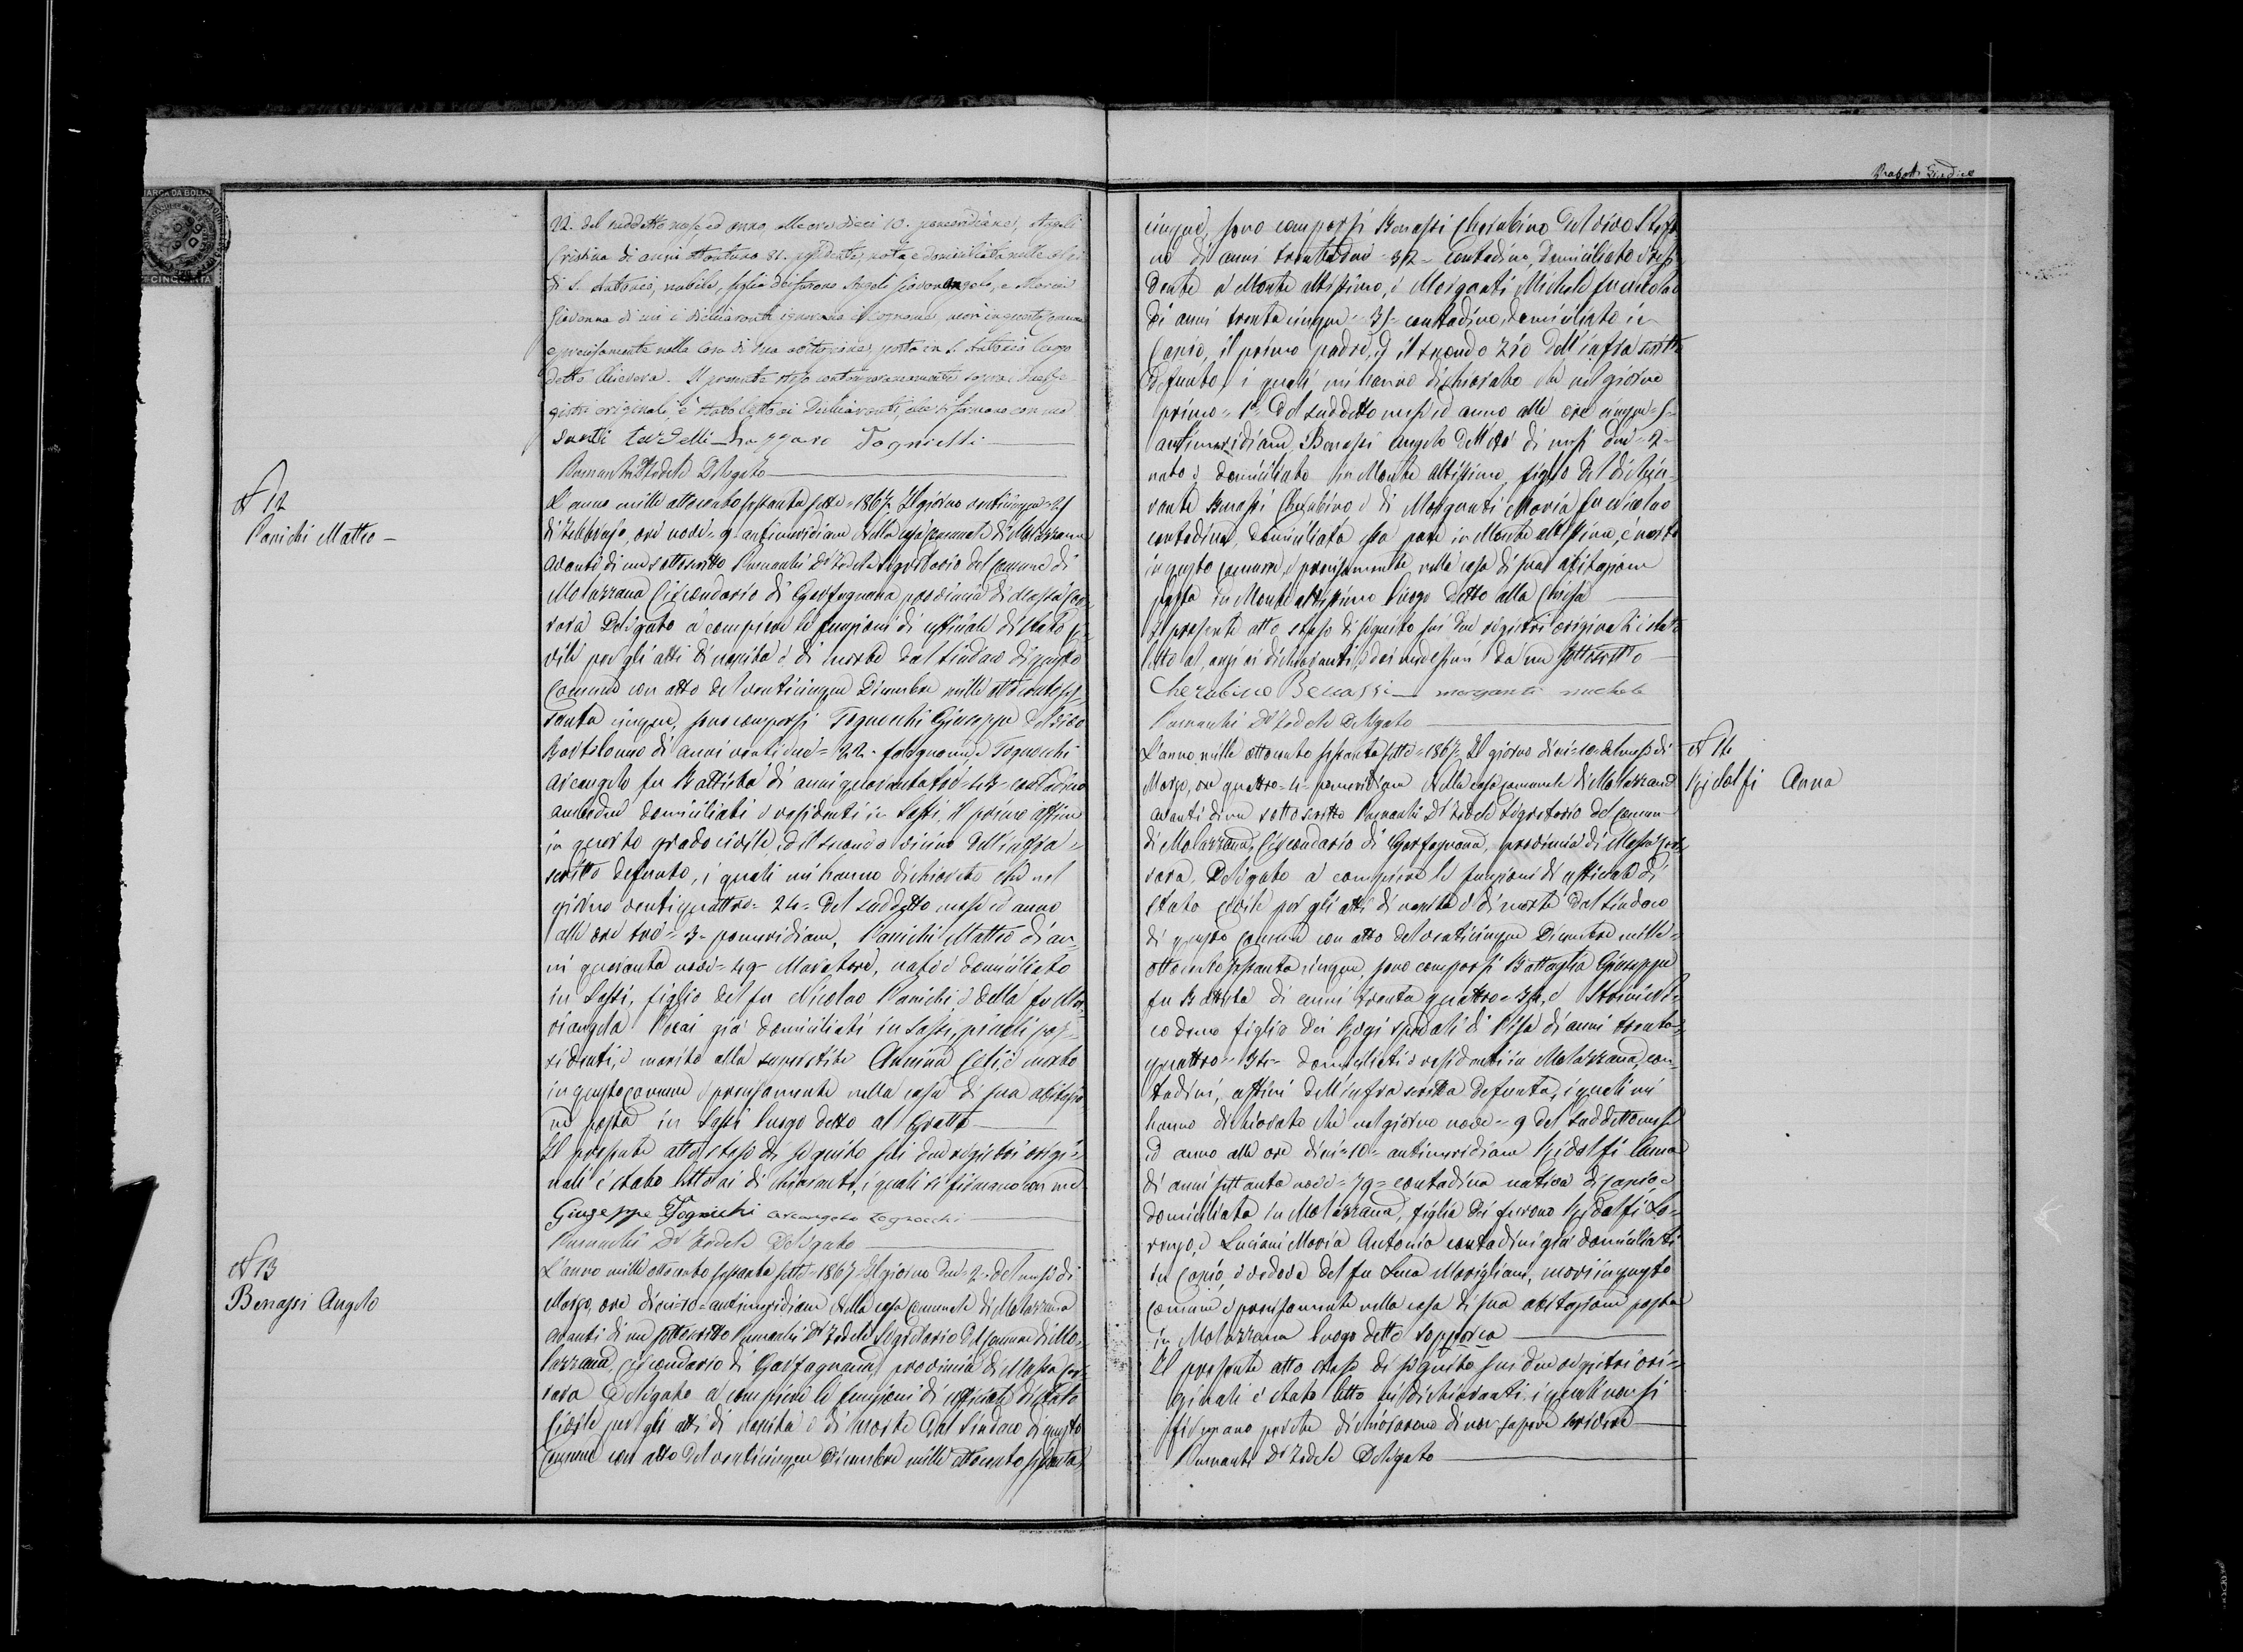 Giudice
MARCA DA BOLLO
CINQUANTA
22. del suddetto mese ed anno, alle ore dieci 10. pomeridiane, Angeli
Cristina di anni ottantuno 81. nata e domiciliata nelle
di S. Antonio, nubile, figlia dei furono Angeli Giovanangelo, e Maria
Giovanna di cui i dichiaranti ignorano il cognome, morì in questo Comune
e precisamente nella Casa di sua abitazione posta in S. Antonio luogo
detto . Il presente steso contemporaneamente sopra i due re-
gistri originali, è stato letto ai Dichiaranti, che si firmano con me
Santi Lazzaro Tognielli
Pennacchi Dr Fedele Delegato
N 12
Panichi Matteo
L'anno mille ottocento sessanta sette = 1867. Il giorno venticinque = 25
di Febbrajo, ore nove = 9 - antimeridiane Nella casa Comunale di Molazzana
avanti di me sottoscritto Dr Fedele Segretario del Comune di
Molazzana Circondario di Garfagnana provincia di Massa Car-
rara Delegato a compiere le funzioni di uffiziale di Stato ci-
vile per gli atti di nascita e di morte dal Sindaco di questo
Comune con atto del venticinque Dicembre mille ottocento ses-
santa cinque, sono comparsi Tognocchi Giuseppe del vivo
Bartolomeo di anni ventidue = 22 - falegname e Tognocchi
Arcangelo fu Battista di anni quarantatre = 43 - contadino
ambedue domiciliati e residenti in Sassi, il primo affine
in quarto grado civile, ed il secondo vicino dell'infra =
scritto defunto, i quali mi hanno dichiarato che nel
giorno ventiquattro = 24 = del suddetto mese ed anno
alle ore tre = 3 - pomeridiane, Panichi Matteo di an-
ni quaranta nove = 49 - Muratore, nato e domiciliato
in Sassi, figlio del fu Nicolao Panichi e della fu Mar-
iangela già domiciliati in Sassi, piccoli pos-
sidenti, e marito alla superstite Annina , è morto
in questo comune e precisamente nella casa di sua abitazio-
ne posta in Sassi luogo detto al
Il presente atto steso di seguito sui due registri origi =
nali è stato letto ai dichiaranti, i quali si firmano con me
Giuseppe Tognocchi Arcangelo Tognocchi
Dr Fedele Delegato
N 13
Benassi Angelo
L'anno mille ottocento sessanta sette = 1867. Il giorno due = 2 - del mese di
Marzo, ore dieci = 10 = antimeridiane Nella casa Comunale di Molazzana
avanti di me sottoscritto Dr Fedele Segretario del Comune di Mo-
lazzana, Circondario di Garfagnana, provincia di Massa Car-
rara Delegato a compiere le funzioni di uffiziale di Stato
Civile per gli atti di nascita e di morte dal Sindaco di questo
Comune con atto del venticinque Dicembre mille ottocento sessanta
cinque, sono comparsi Benassi Cherubino del vivo Stefa
no di anni trentadue = 32 - Contadino, domiciliato e resi
dente a Monte altissimo, e Morganti Michele fu Nicolao
di anni trenta cinque = 35 - contadino, domiciliato in
Caprio, il primo padre, ed il secondo zio dell'infrascritto
defunto i quali mi hanno dichiarato che nel giorno
primo = 1° - del suddetto mese ed anno alle ore cinque = 5 -
antimeridiane Benassi Angelo dell'età di mesi due = 2 -
nato e domiciliato in Monte altissimo, figlio del dichia-
rante Benassi Cherubino e di Morganti Maria fu Nicolao
contadina, domiciliata essa pure in Monte altissimo, è morto
in questo Comune, e precisamente nella casa di sua abitazione
posta in Monte altissimo luogo detto alla Chiesa
Il presente atto steso di seguito sui due registri originali è stato
letto al, anzi ai dichiaranti, e dai medesimi e da me sottoscritto
Cherubino Benassi morganti michele
Dr Fedele Delegato
N 14
Ridolfi Anna
L'anno mille ottocento sessanta sette = 1867. Il giorno dieci = 10 = del mese di
Marzo, ore quattro = 4 = pomeridiane Nella casa Comunale di Molazzana
avanti di me sottoscritto Dr Fedele Segretario del Comune
di Molazzana, Circondario di Garfagnana, provincia di Massa Car-
rara, Delegato a compiere le funzioni di uffiziale di
Stato Civile per gli atti di nascita e di morte dal Sindaco
di questo Comune con atto del venticinque Dicembre mille =
ottocento sessanta cinque, sono comparsi Battaglia Giuseppe
fu Battista di anni trenta quattro = 34, e Ni-
codemo figlio dei Regi spedali di Pisa di anni trenta-
quattro = 34 - domiciliati e residenti in Molazzana, con-
tadini, affini dell'infrascritta defunta, i quali mi
hanno dichiarato che nel giorno nove = 9 del suddetto mese
ed anno alle ore dieci = 10 = antimeridiane Ridolfi Anna
di anni settanta nove = 79 = contadina nativa di Caprio, e
domiciliata in Molazzana, figlia dei furono Ridolfi Lo-
renzo, e Luciani Maria Antonia contadini già domiciliati
in Caprio, e vedova del fu Luca Marigliani, morì in questo
Comune e precisamente nella casa di sua abitazione posta
in Molazzana luogo detto
Il presente atto steso di seguito sui due registri ori =
ginali è stato letto ai dichiaranti i quali non si
firmano perchè dichiararono di non sapere scrivere
Dr Fedele Delegato